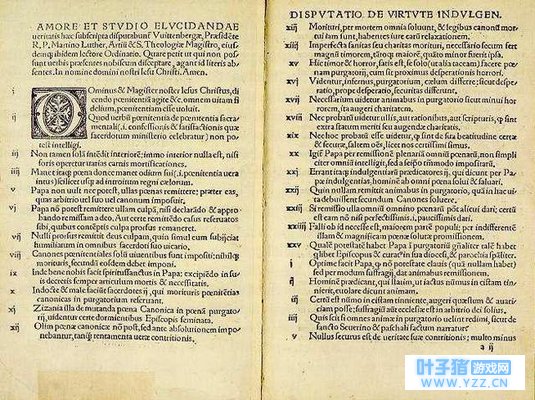 AMORE ET STVDIO ELVCIDANDAE
ueritatis hæc subscripta disputabunt̃ Vuittenbergæ, Præsidẽte
R. P. Martino Luther, Artiũ & S. Theologiæ Magistro, eius-
dem ibidem lectore Ordinario. Quare petit ut qui non pos-
sunt uerbis præsentes nobiscum disceptare, agant id literis ab-
sentes. In nomine domini nostri Iesu Christi. Amen.
i DOminus & Magister noster Iesus Christus, di-
cendo pœnitentiã agite &c. omnem uitam fi-
delium, pœnitentiam esse uoluit.
ij Quod uerbũ pœnitentia de pœnitentia sacra-
mentali (.i. confessionis & satisfactionis quæ
sacerdotum ministerio celebratur) non po-
test intelligi.
iij Non tamen solã intẽdit interiorẽ; immo interior nulla est, nisi
foris operetur uarias carnis mortificationes.
iiij Manet itaq; pœna donec manet odium sui (.i. pœnitentia uera
intus) scilicet usq; ad introitum regni cælorum.
v Papa non uult nec potest, ullas pœnas remittere; præter eas,
quas arbitrio uel suo uel canonum imposuit.
vi Papa nõ potest remittere ullam culpã, nisi declarãdo & appro-
bando remissam a deo. Aut certe remittẽdo casus reseruatos
sibi, quibus contẽptis culpa prorsus remaneret.
vij Nulli prorsus remittit deus culpam, quin simul eum subijciat
humiliatum in omnibus sacerdoti suo uicario.
viij Canones pœnitentiales solũ uiuentibus sunt impositi; nihilq;
morituris, secundũ eosdem debet imponi.
ix Inde bene nobis facit spiritussanctus in Papa; excipiẽdo in su-
is decretis semper articulum mortis & necessitatis.
x Indocte & male faciũt sacerdotes ij, qui morituris pœnitẽtias
canonicas in purgatorium reseruant.
xj Zizania illa de mutanda pœna Canonica in pœnã purgato-
rij, uidentur certe dormientibus Episcopis seminata.
xij Olim pœnæ canonicæ nõ post, sed ante absolutionem impo-
nebantur, tanq̃ tentamenta ueræ contritionis.
DISPVTATIO DE VIRTVTE INDVLGEN.
xiij Morituri, per mortem omnia soluunt, & legibus canonũ mor-
tui iam sunt, habentes iure earũ relaxationem.
xiiij Imperfecta sanitas seu charitas morituri, necessario secum fert
magnũ timorẽ, tantoq; maiorẽ, quãto minor fuerit ipsa.
xv Hic timor & horror, satis est, se solo (ut alia taceam) facere pœ-
nam purgatorij, cum sit proximus desperationis horrori.
xvj Videntur, infernus, purgatorium, cælum differre; sicut despe-
ratio, prope desperatio, securitas differunt.
xvij Necessarium uidetur animabus in purgatorio sicut minui hor-
rorem, ita augeri charitatem.
xviij Nec probatũ uidetur ullis, aut rationibus, aut scripturis, q̃ sint
extra statum meriti seu augendæ charitatis.
xix Nec hoc probatũ esse uidetur, q̃ sint de sua beatitudine certæ
& securæ, saltem oẽs, licet nos certissimi simus.
xx Igit̃ Papa per remissionẽ plenariã omniũ pœnarũ, non simpli-
citer omniũ intelligit, sed a seipso tãtummodo impositarũ.
xxj Errant itaq; indulgentiarũ prædicatores ij, qui dicunt per Pa-
pæ indulgentias, hominẽ ab omni pœna solui & saluari.
xxij Quin nullam remittit animabus in purgatorio, quã in hac ui-
ta debuissent secundum Canones soluere.
xxiij Si remissio ulla omniũ omnino pœnarũ põt alicui dari; certũ
est eam nõ nisi perfectissimis, i. paucissimis dari.
xxiiij Falli ob id necesse est, maiorem partẽ populi; per indifferentẽ
illam & magnificam pœnæ solutæ promissionem.
xxv Qualẽ potestatẽ habet Papa ĩ purgatoriũ gñaliter talẽ habet
quilibet Episcopus & curat9 in sua diocesi, & parochia spãliter.
i Optime facit Papa, q̃ nõ potestate clauis (quã nullam habet)
sed per modum suffragij, dat animabus remissionem.
ij Hominẽ prædicant, qui statim, ut iactus nũmus in cistam tin-
nierit, euolare dicunt animam.
iij Certũ est nũmo in cistam tinniente, augeri quæstum & auari-
ciam posse; suffragiũ aũt ecclesiæ in arbitrio dei solius est.
iiij Quis scit si omnes animæ in purgatorio uelint redimi, sicut de
sancto Seuerino & paschali factum narratur
v Nullus securus est de ueritate suæ contritionis; multo minus
a ij
叶子猪游戏网
WWW.YZZ.CN